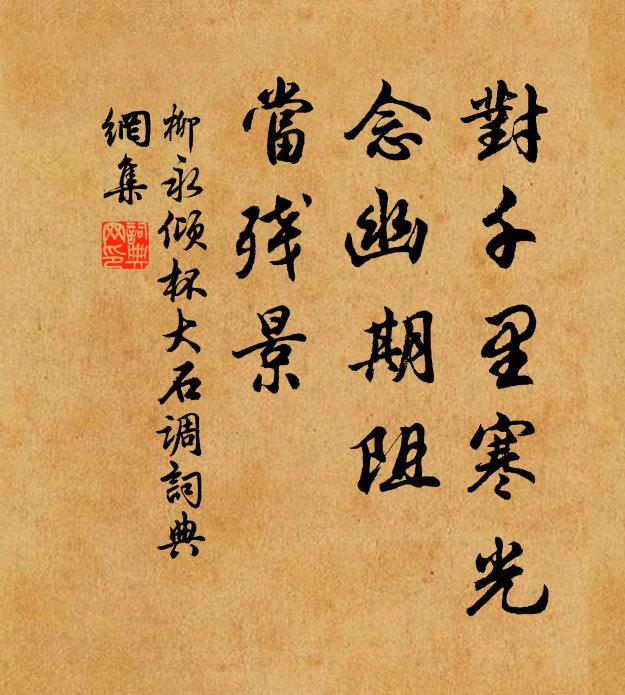 對千里寒光
念幽期阻
當残景
柳永倾杯大石调詞典
網集
詞典
网印